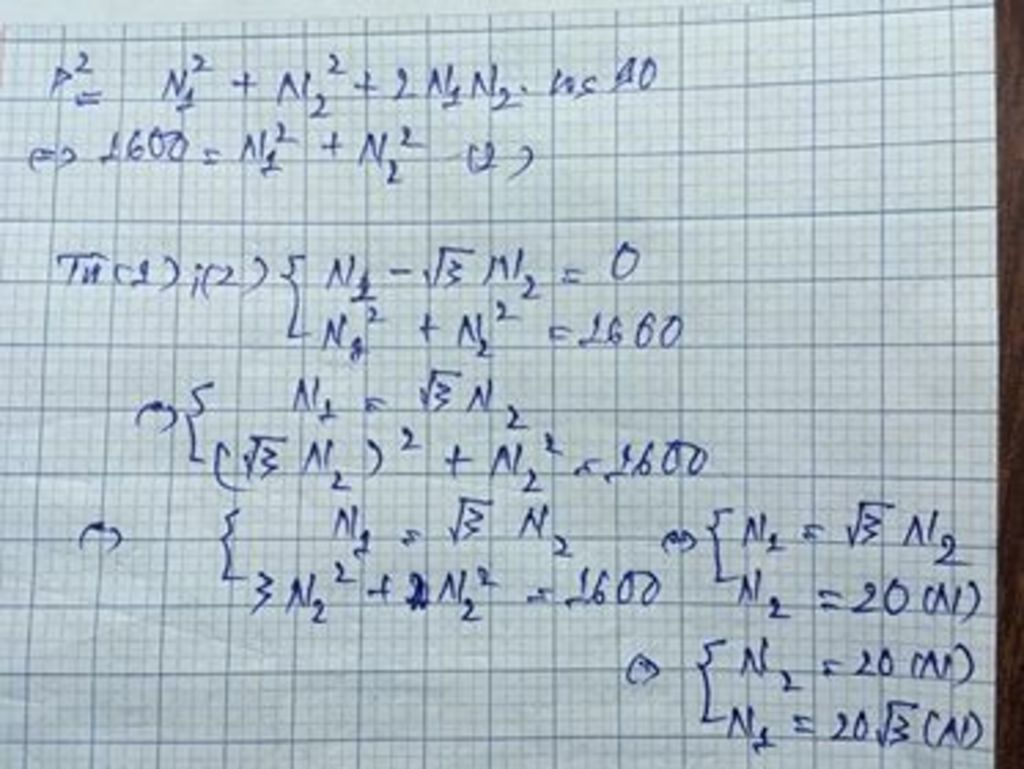 P² = N₁² + N₂² + 2N₁N₂. cos 90
⇔ 1600 = N₁² + N₂² (2)
Từ (1);(2) { N₁ - √3 N₂ = 0
N₁² + N₂² = 1600
⇔ { N₁ = √3 N₂
(√3 N₂)² + N₂² = 1600
⇔ { N₁ = √3 N₂ ⇔ { N₁ = √3 N₂
3N₂² + N₂² = 1600 N₂ = 20 (N)
⇔ { N₂ = 20 (N)
N₁ = 20√3 (N)